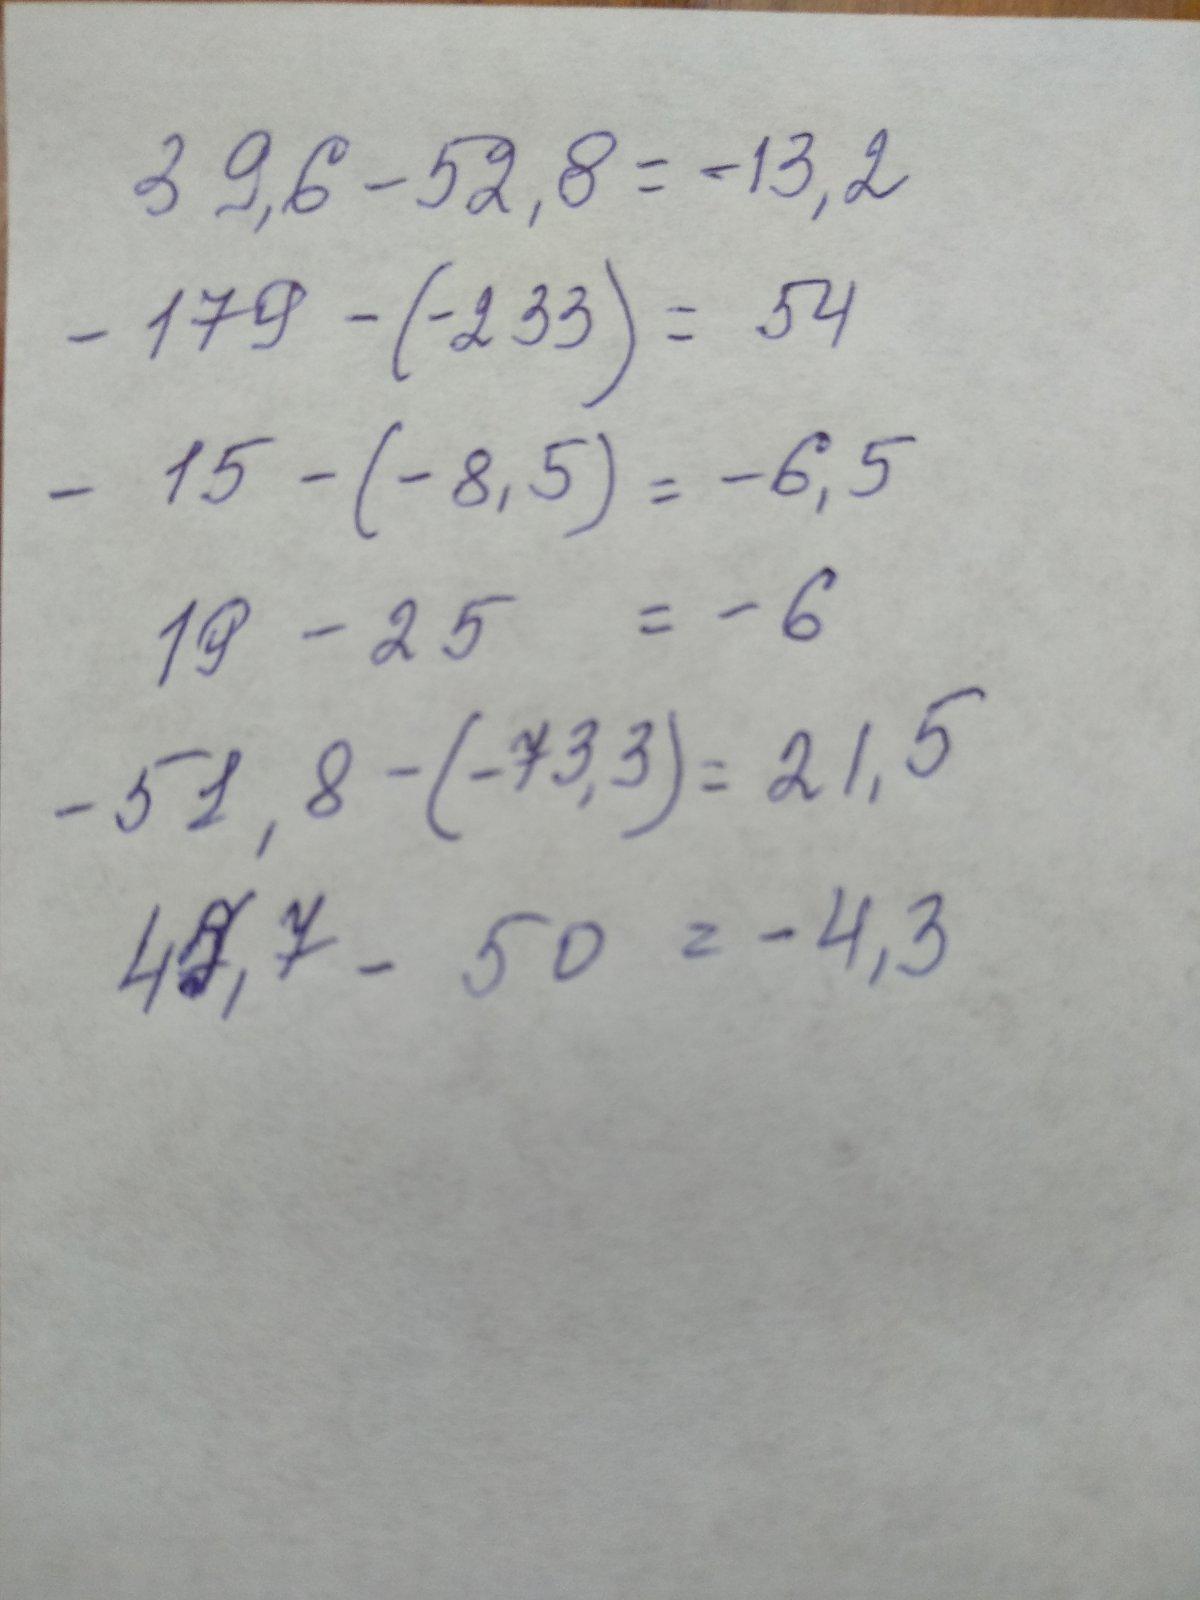 39,6 - 52,8 = -13,2
- 179 - (-233) = 54
- 15 - (-8,5) = -6,5
19 - 25 = -6
-51,8 - (-73,3) = 21,5
45,7 - 50 = -4,3